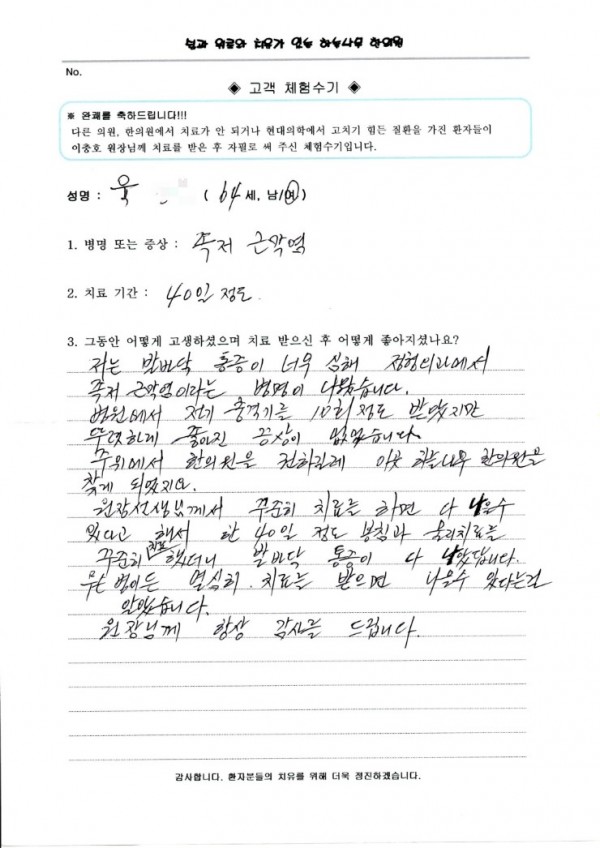 No.
◈ 고객 체험수기 ◈
※ 완쾌를 축하드립니다!!!
다른 의원, 한의원에서 치료가 안 되거나 현대의학에서 고치기 힘든 질환을 가진 환자들이
이충호 원장님께 치료를 받은 후 자필로 써 주신 체험수기입니다.
성명 : 옥 ( 64 세, 남/여 )
1. 병명 또는 증상 : 족저 근막염
2. 치료 기간 : 40일 정도.
3. 그동안 어떻게 고생하셨으며 치료 받으신 후 어떻게 좋아지셨나요?
저는 발바닥 통증이 너무 심해 정형외과에서
족저 근막염이라는 병명이 나왔습니다.
병원에서 전기 충격기를 10회 정도 받았지만
뚜렷하게 좋아진 공상이 없었습니다.
주위에서 한의원을 권하길래 이곳 하늘나무 한의원을
찾게 되었지요.
원장선생님께서 꾸준히 치료를 하면 다 나을수
있다고 해서 한 40일 정도 봉침과 물리치료를
꾸준히 치료 했더니 발바닥 통증이 다 났았답니다.
무슨 병이든 열심히 치료를 받으면 나을수 있다는걸
알았습니다.
원장님께 항상 감사를 드립니다.
감사합니다. 환자분들의 치유를 위해 더욱 정진하겠습니다.